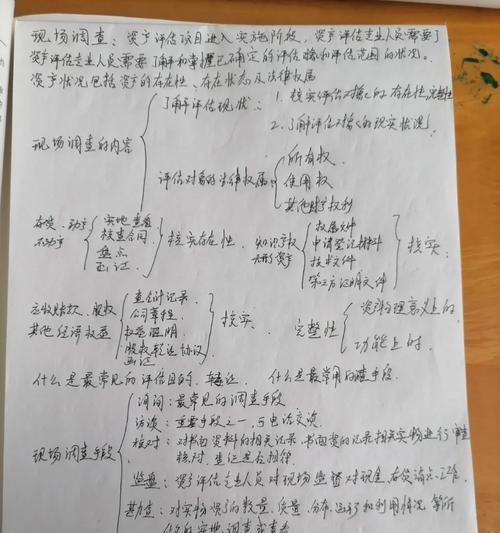 现场调查：资产评估项目进入实施阶段，资产评估专业人员需要了
资产评估专业人员需要了解和掌握已确定的评估对象和评估范围的状况。
资产状况包括资产的存在性、存在状态及法律权属
现场调查的内容
了解评估现状：
1. 核实评估对象的存在性完整性
2. 了解评估对象的现实状况
评估对象的法律权属
所有权
使用权
其他财产权利
存货、动产
不动产
实地查看
核查合同
盘点
函证
核实存在性
知识产权
无形资产
权属文件
申请登记材料
技术文件
第三方证明文件
核实
应收账款、股权
其他经济权益
查会计记录
公司章程
权益证明
股权转让协议
函证
核实
完整性
资产物理意义上的
功能上的
什么是最常见的评估目的 转让
什么是最常用的手段
现场调查手段
询问：最常见的调查手段
访谈：重要手段之一，与电话交流
核对：对书面资料的相关记录，书面的记录相关实物进行审查
核对，查证是否相符
监盘：资产评估专业人员对现场监督对现金、存货清点工作
勘查：对实物资产的数量、质量、分布、运行和利用情况等所
的实地调查或查看